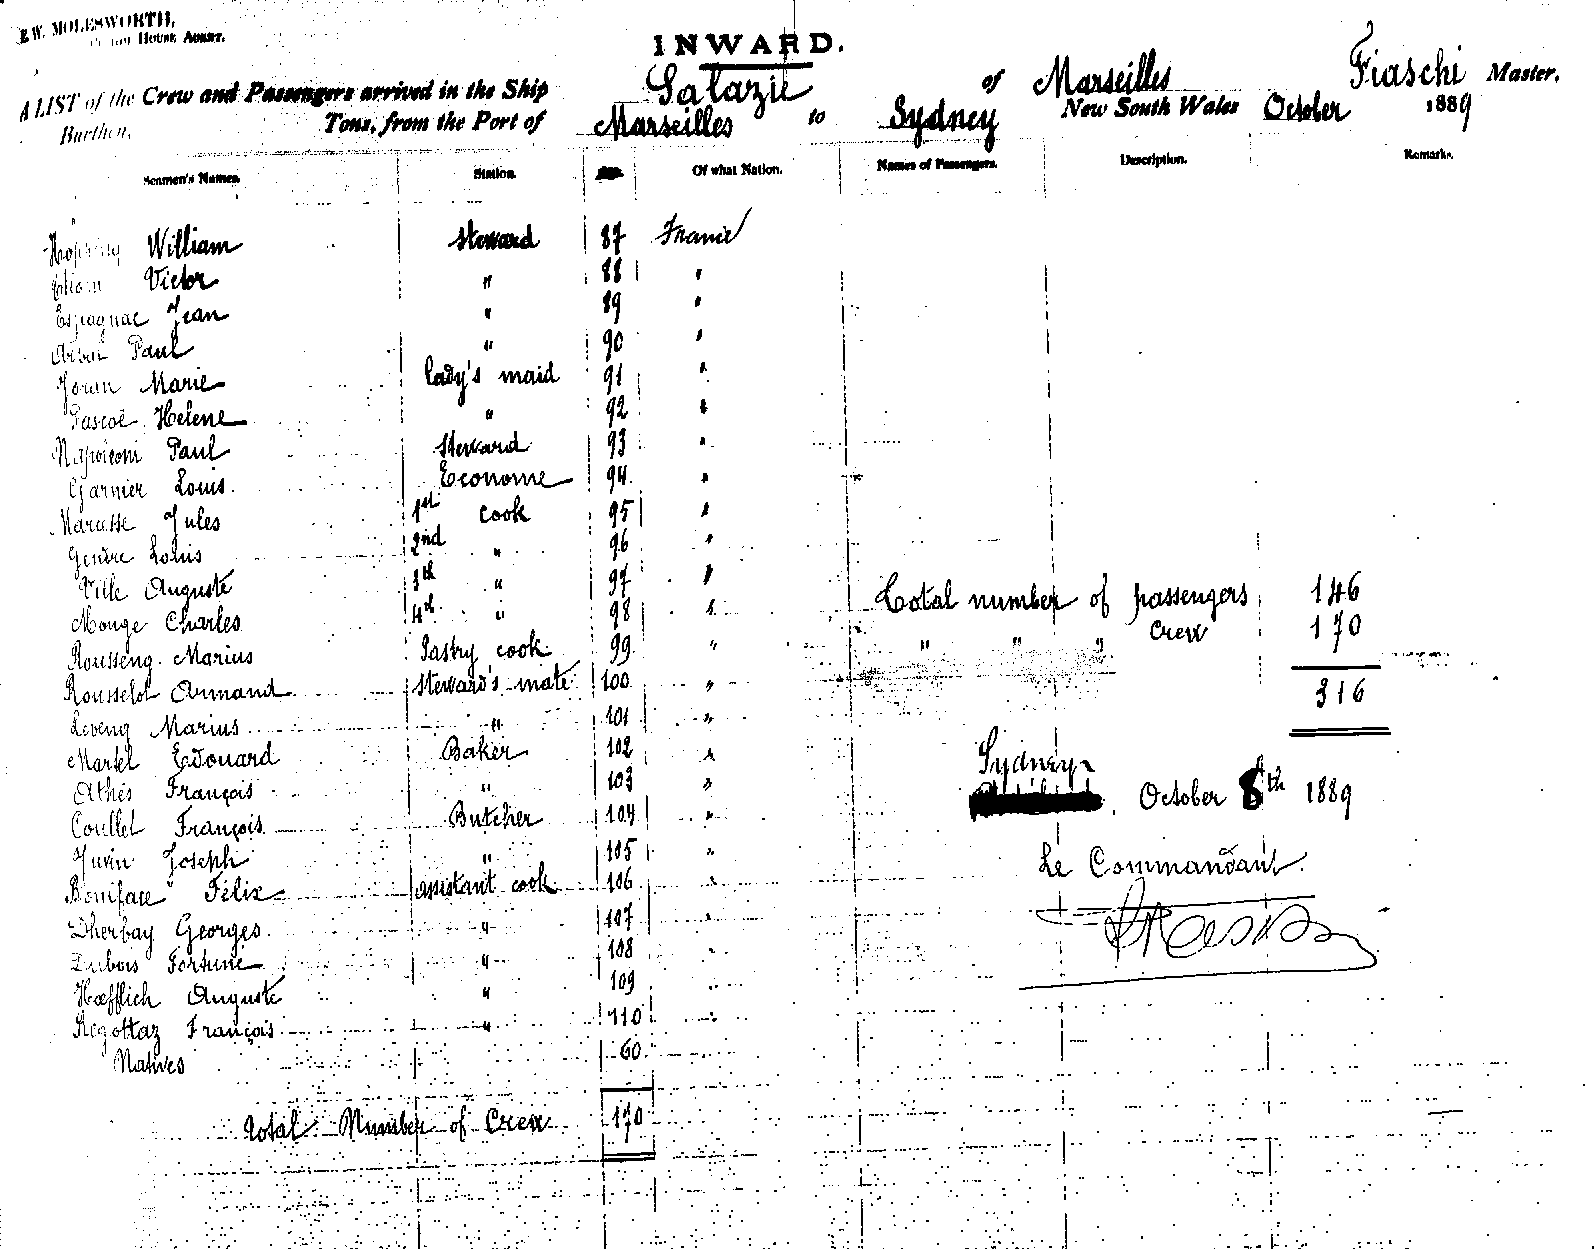 E.W. MOLESWORTH,
HOUSE AGENT.
INWARD.
A LIST of the Crew and Passengers arrived in the Ship Salazie of Marseilles Fiaschi Master,
Burthen, Tons, from the Port of Marseilles to Sydney New South Wales October 1889
Seamen's Names. Station. Of what Nation. Names of Passengers. Description. Remarks.
William Steward 87 France
Victor " 88 "
Espagnac Jean " 89 "
Paul " 90 "
Marie lady's maid 91 "
Pascoë Helene " 92 "
Napoleoni Paul Steward 93 "
Garnier Louis Econome 94 "
Jules 1st cook 95 "
Louis 2nd " 96 "
Ville Auguste 3th " 97 "
Monge Charles 4th " 98 "
Rousseng Marius Pastry cook 99 "
Rousselot Armand Steward's mate 100 "
Leveng Marius " 101 "
Martel Edouard Baker 102 "
Athès François " 103 "
Coullet François Butcher 104 "
Juvin Joseph " 105 "
Boniface Félix assistant cook 106 "
Dherbay Georges " 107 "
Dubois Fortuné " 108 "
Hœfflich Auguste " 109 "
Regottaz François " 110 "
Natives 60
Total Number of Crew 170
Total number of passengers 146
" " " Crew 170
316
Sydney
October 8th 1889
Le Commandant